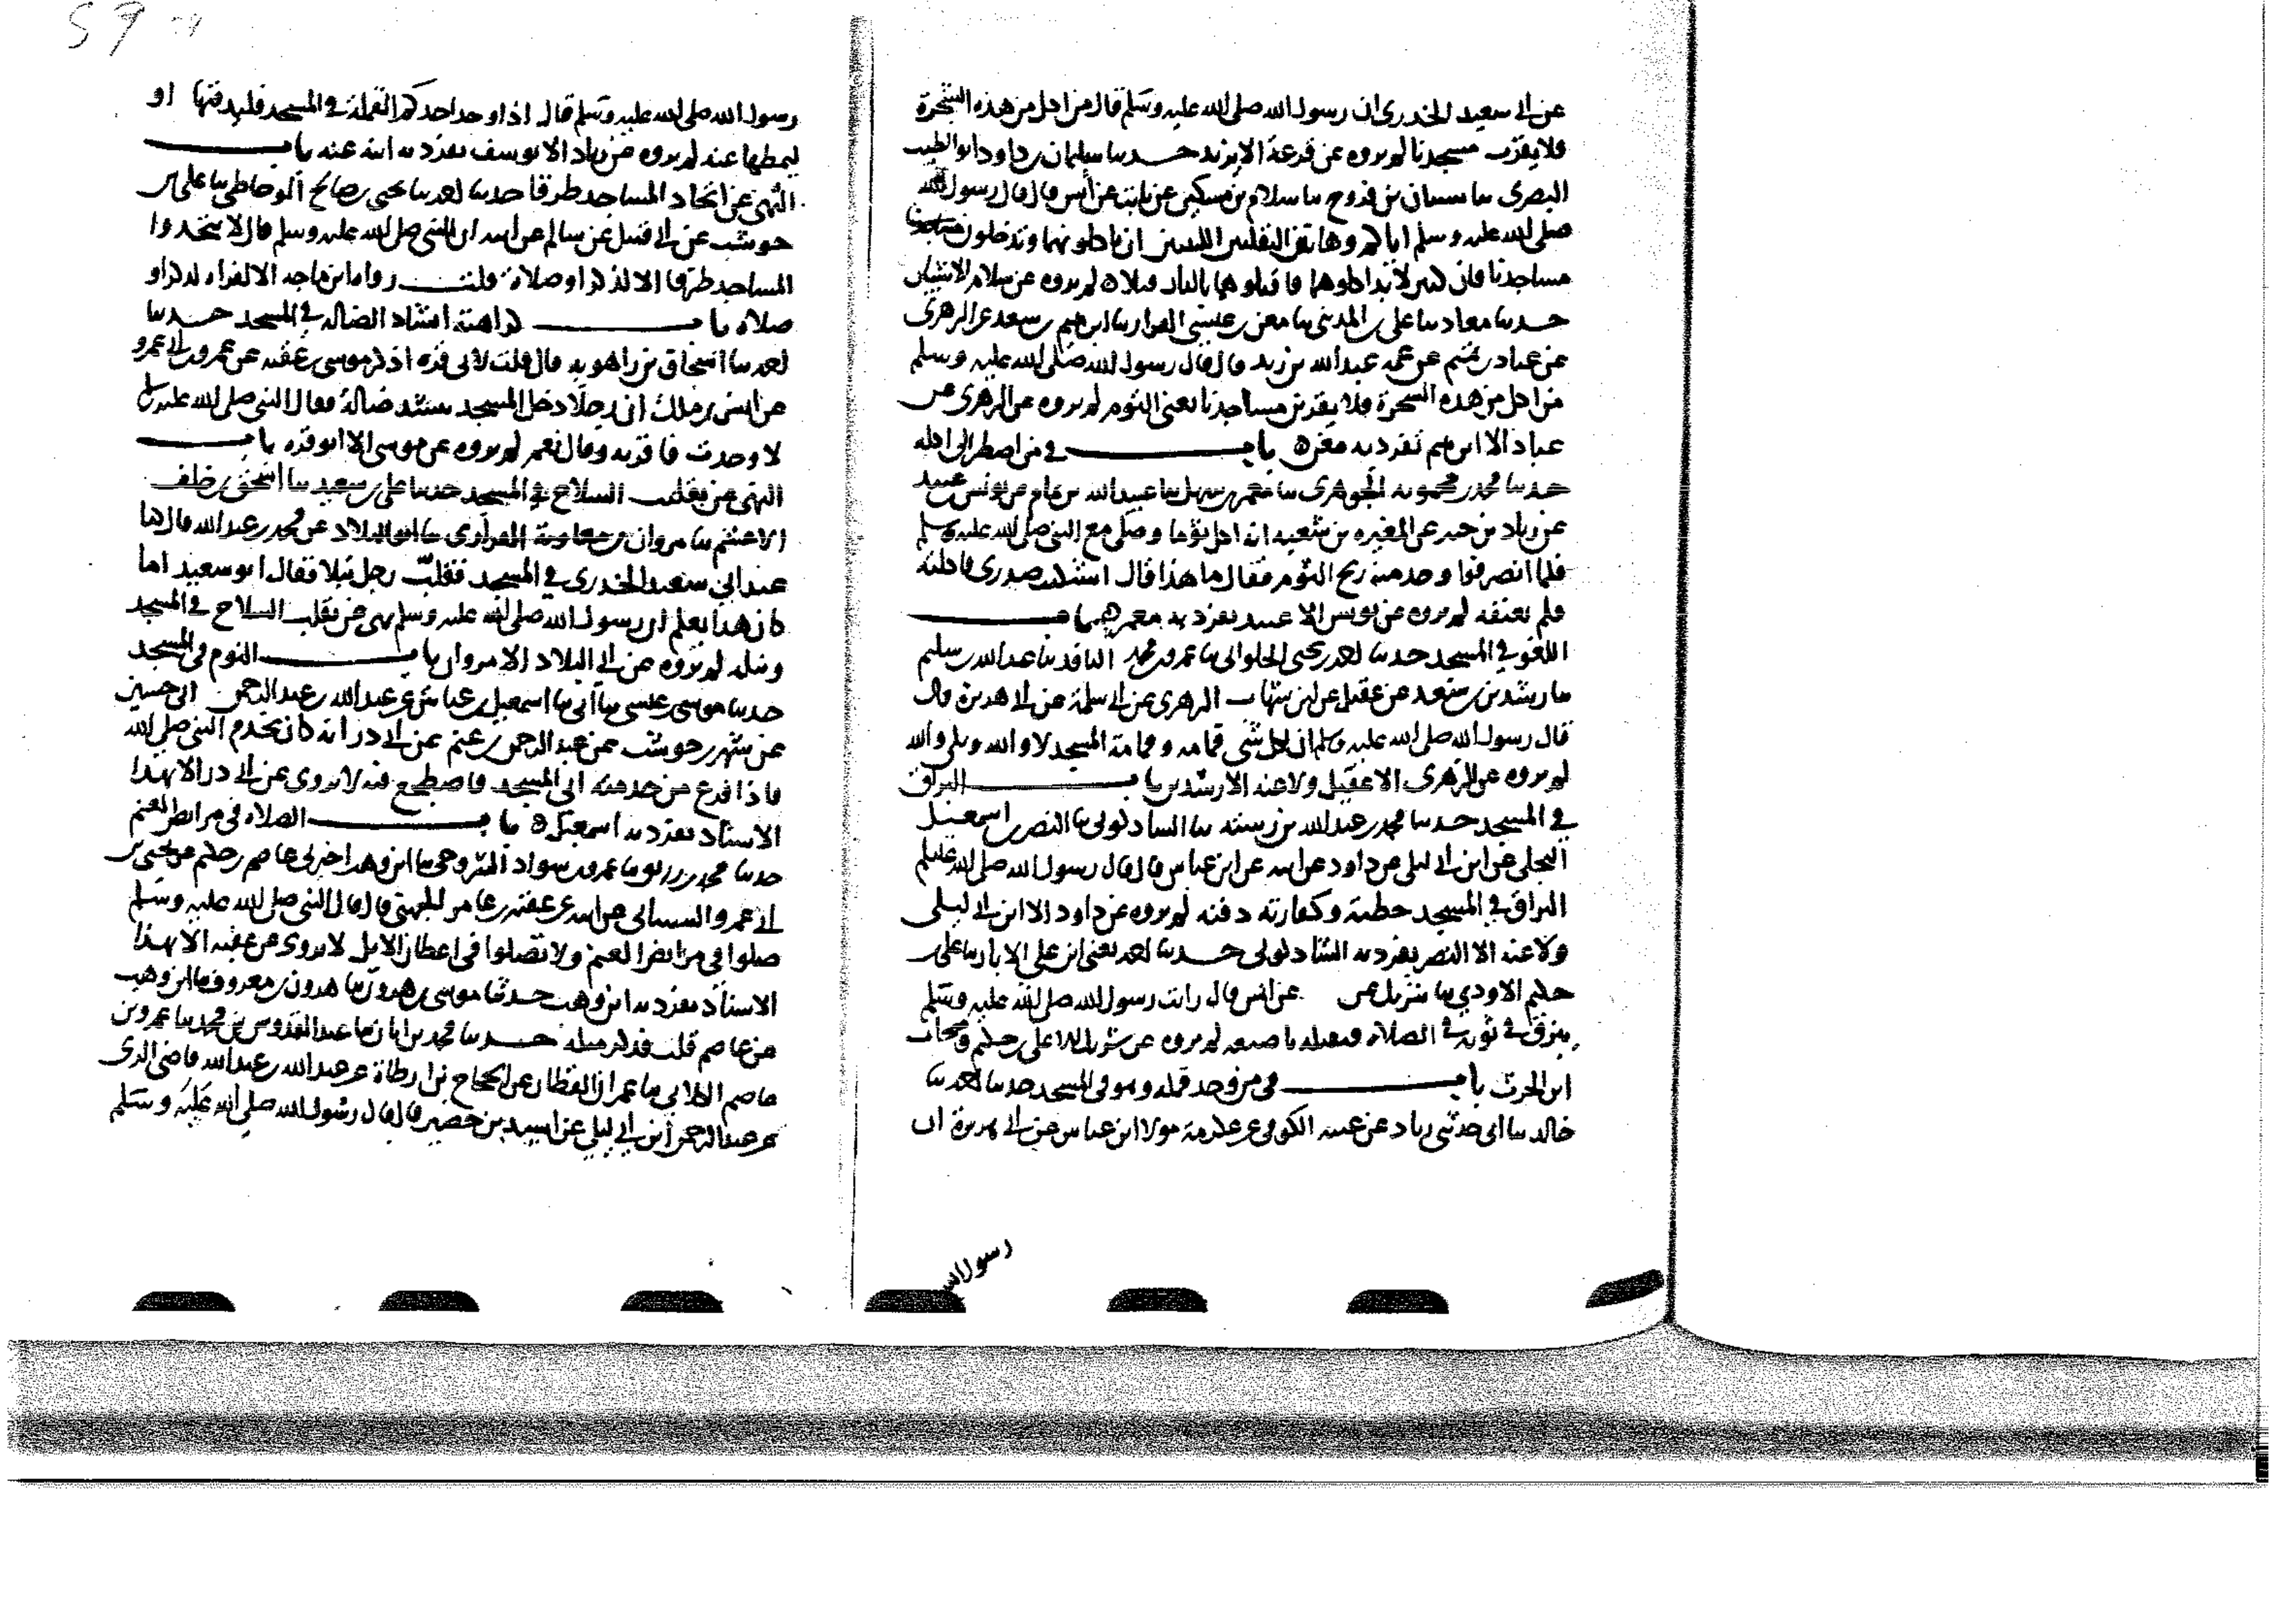 عن ابى سعيد الخدرى ان رسول الله صلى الله عليه وسلم قال من اكل من هذه الشجرة
فلا يقرب مسجدنا لم يروه عن قزعة الا يزيد حـدثنا سليمان بن داود ابو الطيب
البصرى ثنا شيبان بن فروخ ثنا سلام بن مسكين عن ثابت عن انس قال قال رسول الله
صلى الله عليه وسلم اياكم وهاتين البقلتين المنتنتين ان تاكلونهما وتدخلون مساجدنا
مساجدنا فان كنتم لا بد اكلوهما فاقتلوهما بالنار قتلا ه لم يروه عن سلام الا شيبان
حـدثنا معاذ ثنا على بن المدينى ثنا معن بن عيسى القزاز ثنا ابرهيم بن سعد عن الزهرى
عن عباد بن تميم عن عمه عبد الله بن زيد قال قال رسول الله صلى الله عليه وسلم
من اكل من هذه الشجرة فلا يقربن مساجدنا يعنى الثوم لم يروه عن الزهرى عن
عباد الا ابرهيم تفرد به معن ه باب فى من اضطر الى اكله
حـدثنا محمد بن محمويه الجوهرى ثنا معمر بن سهل ثنا عبيد الله بن تمام عن يونس بن عبيد
عن زياد بن جبير عن المغيره بن شعبه انه اكل ثوما وصلى مع النبى صلى الله عليه وسلم
فلما انصرفوا وجد منه ريح الثوم فقال ما هذا قال اشتكيت صدرى فاكلته
فلم يعنفه لم يروه عن يونس الا عبيد تفرد به معمر ه باب
اللغو فى المسجد حدثنا احمد بن يحيى الحلوانى ثنا عمرو بن محمد الناقد ثنا عبد الله بن سليم
ثنا رشدين بن سعد عن عقيل عن ابن شهاب الزهرى عن ابى سلمة عن ابى هريرة قال
قال رسول الله صلى الله عليه وسلم ان لكل شى قمامه وقمامة المسجد لا والله وبلى والله
لم يروه عن الزهرى الا عقيل ولا عنه الا رشدين باب البزاق
فى المسجد حدثنا محمد بن عبد الله بن رسته ثنا الشاذكونى ثنا النضر بن اسمعيل
البجلى عن ابن ابى ليلى عن داود عن ابيه عن ابن عباس قال قال رسول الله صلى الله عليه وسلم
البزاق فى المسجد خطية وكفارته دفنه لم يروه عن داود الا ابن ابى ليـلى
ولا عنه الا النضر تفرد به الشاذكونى حـدثنا احمد يعنى ابن على الابار ثنا على بن
حكيم الاودى ثنا شريك عن عن انس قال رايت رسول الله صلى الله عليه وسلم
يبزق فى ثوبه فى الصلاه فيفتله باصبعه لم يروه عن شريك الا على بن حكيم
ابن الحرث باب فى من وجد قمله وهو فى المسجد حدثنا احمد ثنا
خالد ثنا ابى حدثنى زياد عن عتبه الكوفى عن عكرمة مولى ابن عباس عن ابى هريرة ان
رسول الله
رسول الله صلى الله عليه وسلم قال اذا وجد احدكم القملة فى المسجد فليدفنها او
ليمطها عنه لم يروه عن زياد الا يوسف تفرد به ابنه عنه باب
النهى عن اتخاذ المساجد طرقا حدثنا احمد ثنا يحيى بن صالح الوحاظى ثنا على بن
حوشب عن ابى قبيل عن سالم عن ابيه ان النبى صلى الله عليه وسلم قال لا تتخذوا
المساجد طرقا الا لذكر او صلاة قلت رواه ابن ماجه الا قوله لذكر او
صلاه باب كراهية انشاد الضاله فى المسجد حـدثنا
احمد ثنا اسحاق بن راهويه قال قلت لابى قره اذكر موسى بن عقبه عن عمرو بن ابى عمرو
عن انس بن ملك ان رجلا دخل المسجد ينشد ضالة فقال النبى صلى الله عليه وسلم
لا وجدت فاقر به وقال نعم لم يروه عن موسى الا ابو قره باب
النهى عن تقليب السلاح فى المسجد حدثنا على بن سعيد ثنا اسحق بن خلف
الاعشم ثنا مروان بن معاوية الفزارى ثنا ابو البلاد عن محمد بن عبد الله قال كنا
عند ابى سعيد الخدرى فى المسجد فقلب رجل نبلا فقال ابو سعيد اما
كان هذا يعلم ان رسول الله صلى الله عليه وسلم نهى عن تقليب السلاح فى المسجد
وسله لم يروه عن ابى البلاد الا مروان باب النوم فى المسجد
حدثنا موسى بن عيسى ثنا ابى ثنا اسمعيل بن عياش عن عبد الله بن عبد الرحمن بن ابى حسين
عن شهر بن حوشب عن عبد الرحمن بن غنم عن ابى ذر انه كان يخدم النبى صلى الله
فاذا فرغ من خدمته اتى المسجد فاضطجع فيه لا يروى عن ابى ذر الا بهذا
الاسناد تفرد به اسمعيل ه باب الصلاه فى مرابض الغنم
حدثنا محمد بن زريق ثنا عمرو بن سواد السرحى ثنا ابن وهب اخبرنى عاصم بن حكيم عن يحيى بن
ابى عمرو السيبانى عن ابيه عن عقبه بن عامر الجهنى قال قال النبى صلى الله عليه وسلم
صلوا فى مرابض الغنم ولا تصلوا فى اعطان الابل لا يروى عن عقبه الا بهذا
الاسناد تفرد به ابن وهب حـدثنا موسى بن هرون ثنا هرون بن معروف ثنا ابن وهب
عن عاصم قلت فذكر مثله حـدثنا محمد بن ابان ثنا عبد القدوس بن محمد ثنا عمرو بن
عاصم الكلابى ثنا عمران القطان عن الحجاج بن ارطاة عن عبد الله بن عبد الله قاضى الرى
عن عبد الرحمن ابن ابى ليلى عن اسيد بن حضير قال قال رسول الله صلى الله عليه وسلم